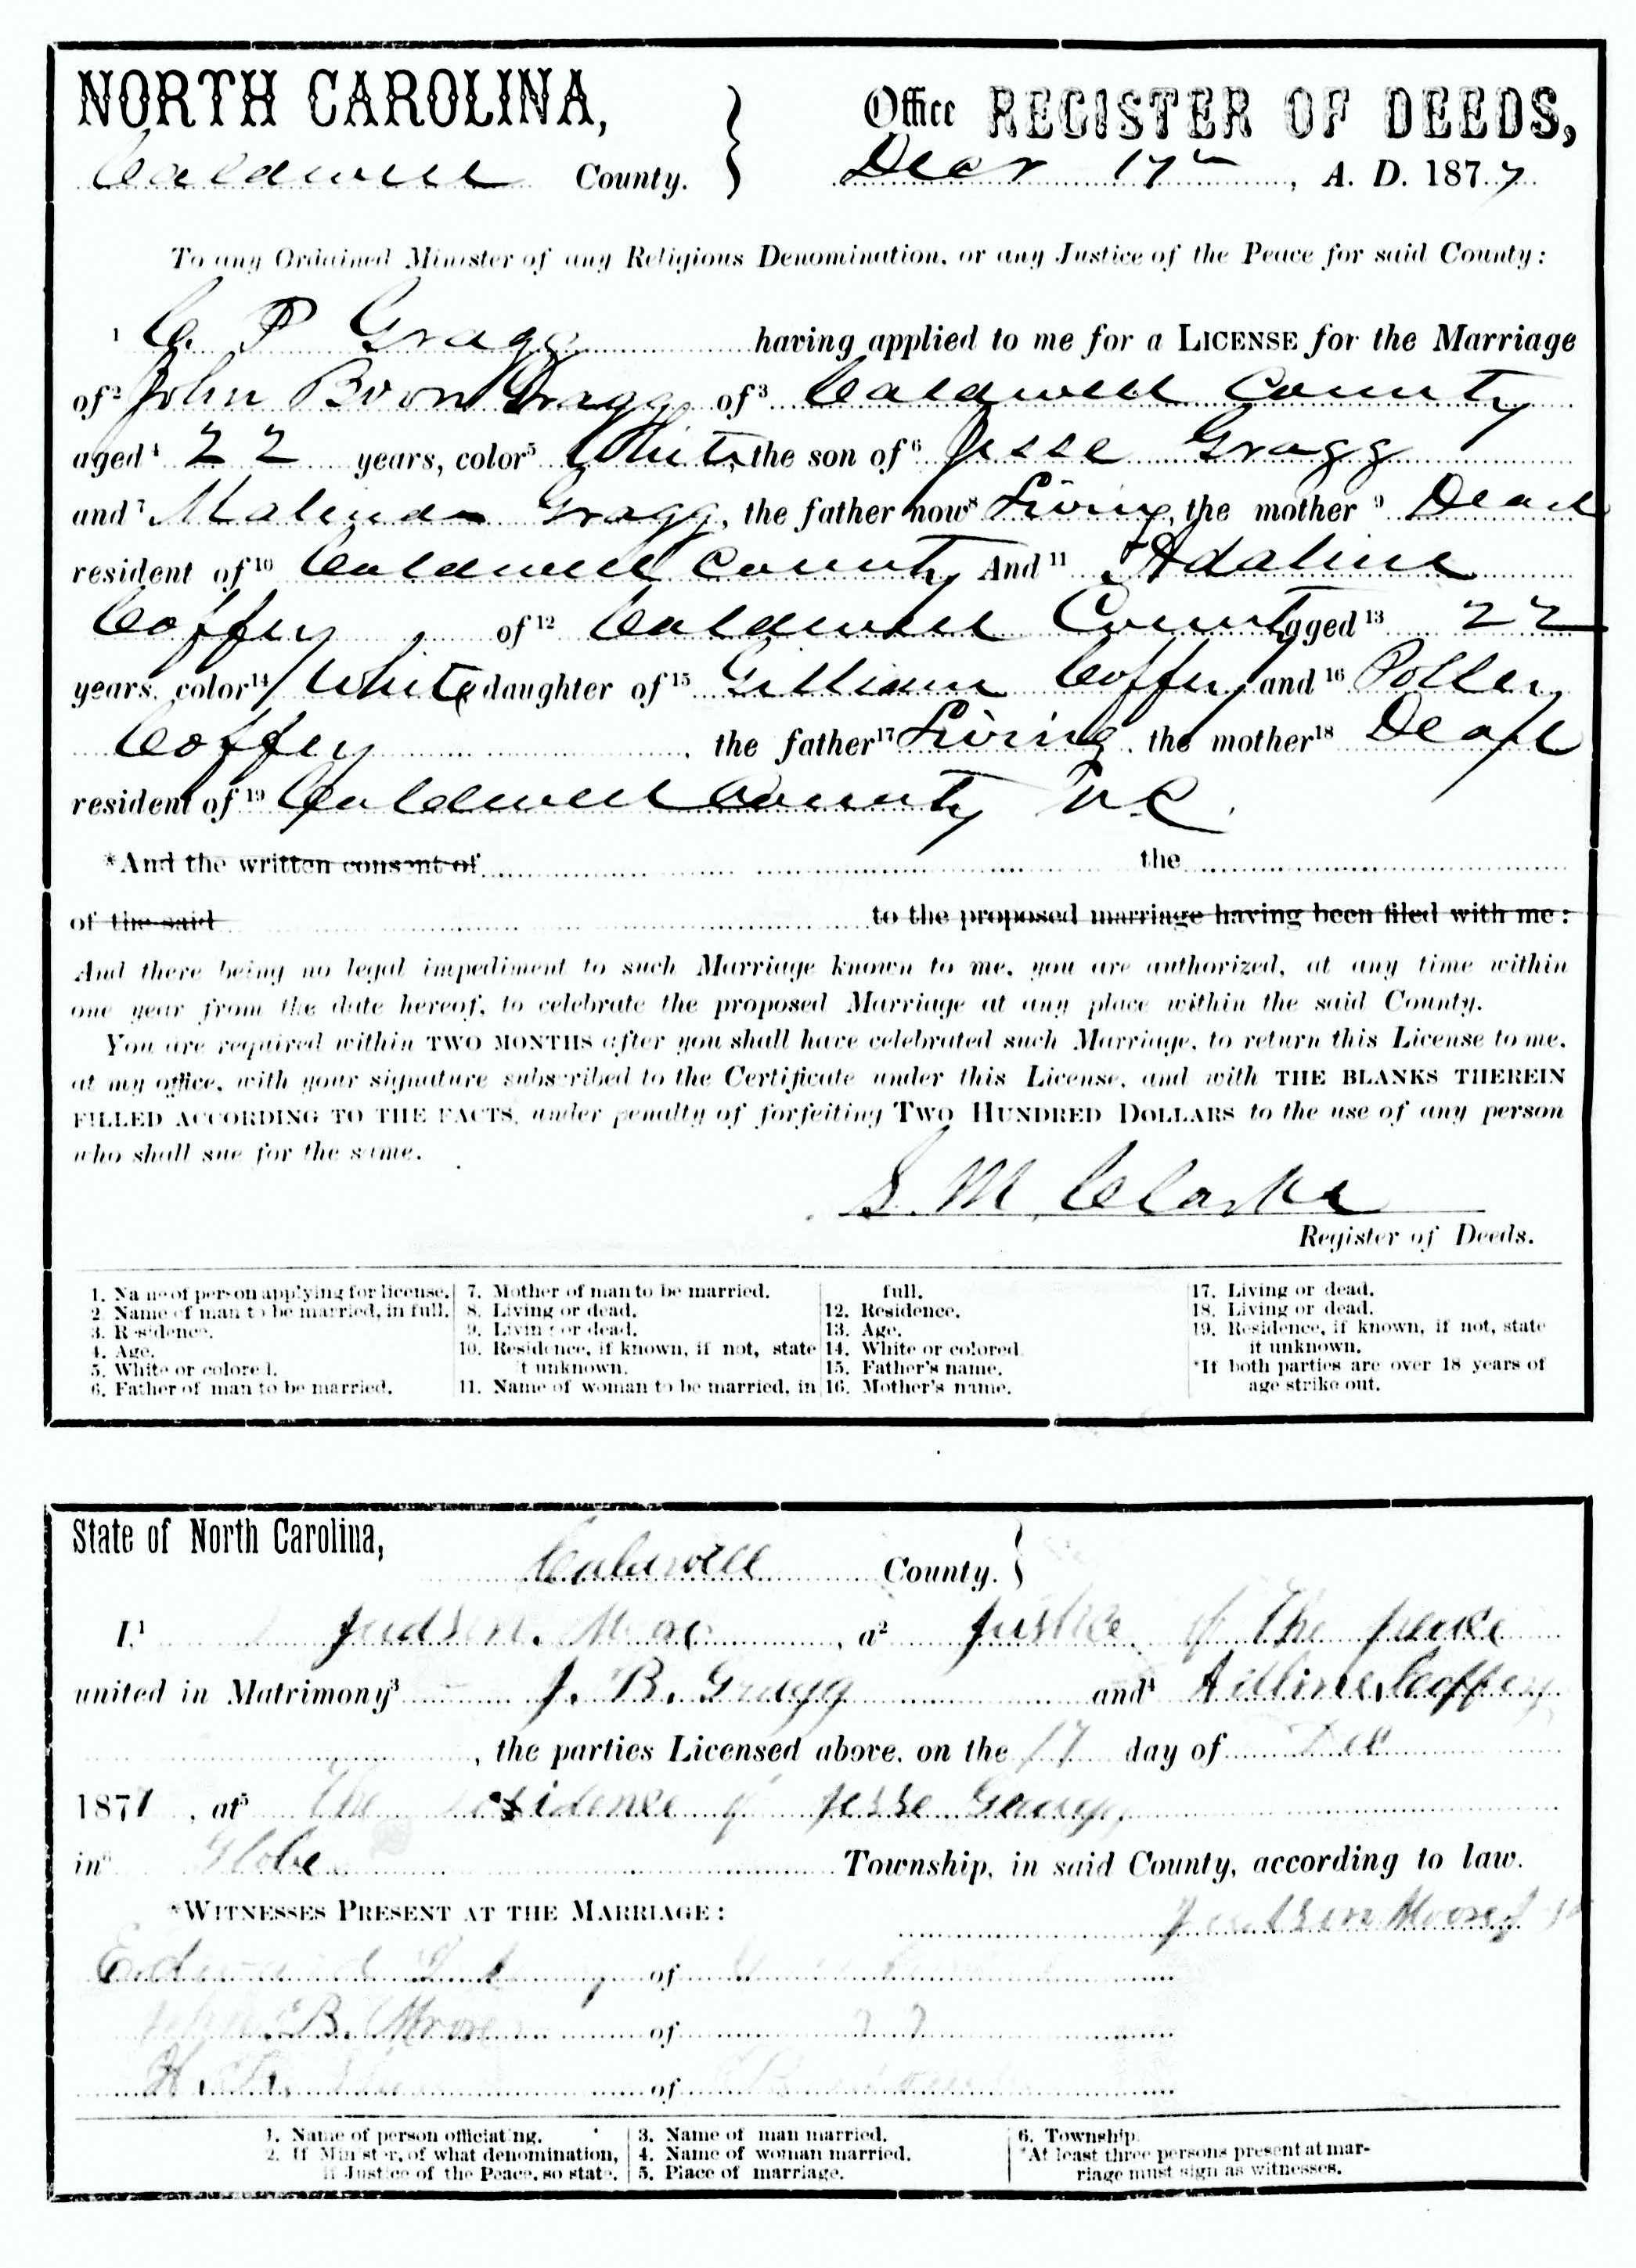 NORTH CAROLINA,
Caldwell County.
Office REGISTER OF DEEDS,
Decr 17th, A. D. 1877
To any Ordained Minister of any Religious Denomination, or any Justice of the Peace for said County:
1 C. P Gragg having applied to me for a LICENSE for the Marriage
of 2 John Boon Gragg of 3 Caldwell County
aged 4 22 years, color 5 White, the son of 6 Jesse Gragg
and 7 Malinda Gragg, the father now 8 Living, the mother 9 Dead
resident of 10 Caldwell County And 11 Adaline
Coffey, of 12 Caldwell County aged 13 22
years, color 14 White daughter of 15 Gilliam Coffey and 16 Polley
Coffey, the father 17 Living, the mother 18 Dead
resident of 19 Caldwell County N.C.
*And the written consent of the
of the said to the proposed marriage having been filed with me:
And there being no legal impediment to such Marriage known to me, you are authorized, at any time within
one year from the date hereof, to celebrate the proposed Marriage at any place within the said County.
You are required within TWO MONTHS after you shall have celebrated such Marriage, to return this License to me,
at my office, with your signature subscribed to the Certificate under this License, and with THE BLANKS THEREIN
FILLED ACCORDING TO THE FACTS, under penalty of forfeiting TWO HUNDRED DOLLARS to the use of any person
who shall sue for the same.
S. M. Clarke
Register of Deeds.
1. Name of person applying for license.
2 Name of man to be married, in full.
3. Residence.
4. Age.
5. White or colored.
6. Father of man to be married.
7. Mother of man to be married.
8. Living or dead.
9. Living or dead.
10. Residence, if known, if not, state
it unknown.
11. Name of woman to be married, in
full.
12. Residence.
13. Age.
14. White or colored
15. Father's name.
16. Mother's name.
17. Living or dead.
18. Living or dead.
19. Residence, if known, if not, state
it unknown.
*If both parties are over 18 years of
age strike out.
State of North Carolina,
Caldwell County.
I, 1 Judson Moore, a 2 Justice of the peace
united in Matrimony 3 J. B. Gragg and 4 Adline Coffey
, the parties Licensed above, on the 17 day of Dec
1877, at 5 the residence of Jesse Gragg
in 6 Globe Township, in said County, according to law.
*WITNESSES PRESENT AT THE MARRIAGE:
Judson Moore J
Edward of
John B. Moore of
H. of
1. Name of person officiating.
2. If Minister, of what denomination,
if Justice of the Peace, so state.
3. Name of man married.
4. Name of woman married.
5. Place of marriage.
6. Township.
*At least three persons present at mar-
riage must sign as witnesses.